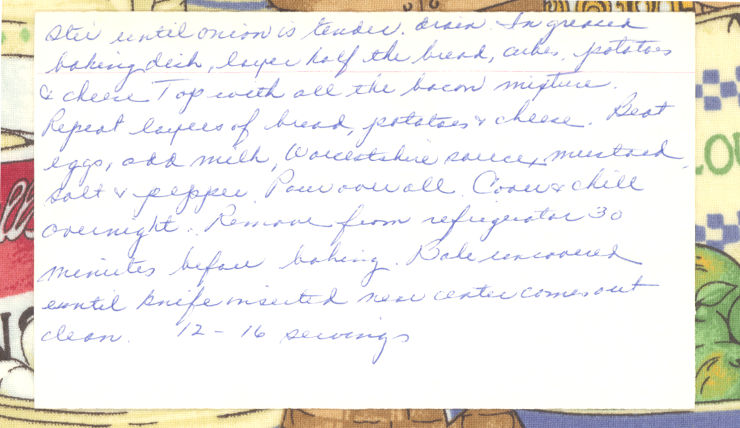 Stir until onion is tender. drain. In greased
baking dish, layer half the bread, cubes, potatoes
& cheese Top with all the bacon mixture.
Repeat layers of bread, potatoes & cheese. Beat
eggs, add milk, Worcestshire sauce, mustard
salt & pepper. Pour over all. Cover & chill
overnight. Remove from refrigerator 30
minutes before baking. Bake uncovered
until knife inserted near center comes out
clean. 12 - 16 servings